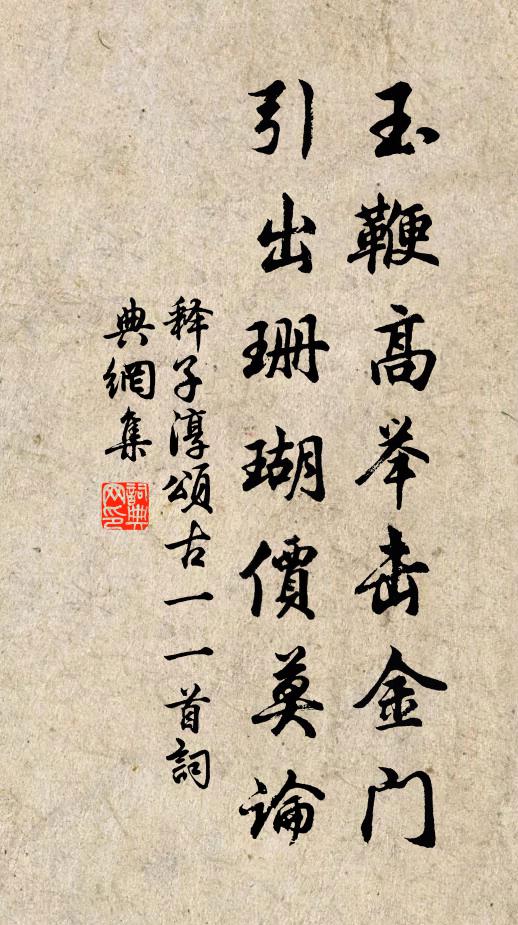 玉鞭高举击金门
引出珊瑚價莫論
释子淳頌古一一首詞
典網集
詞典网印